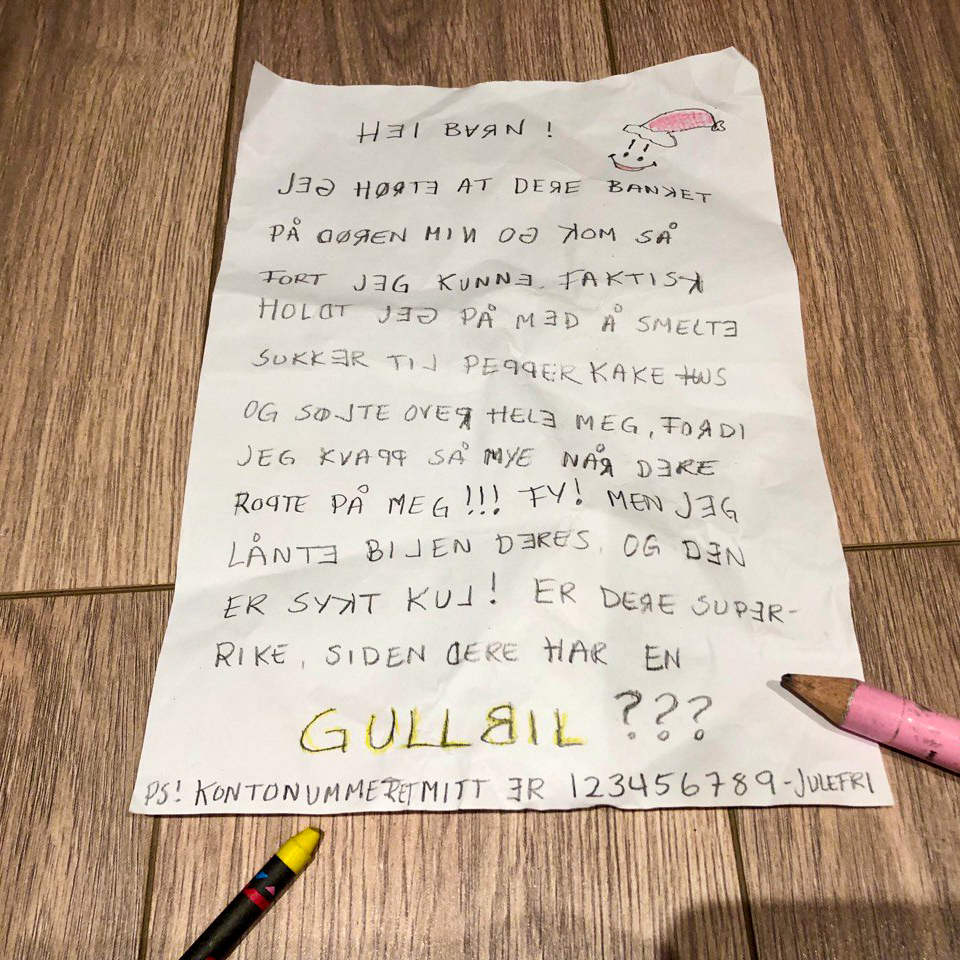 HEI BARN !
JEG HØRTE AT DERE BANKET
PÅ DØREN MIN OG KOM SÅ
FORT JEG KUNNE. FAKTISK
HOLDT JEG PÅ MED Å SMELTE
SUKKER TIL PEPPERKAKEHUS
OG SØLTE OVER HELE MEG, FORDI
JEG KVAPP SÅ MYE NÅR DERE
ROPTE PÅ MEG!!! FY! MEN JEG
LÅNTE BILEN DERES, OG DEN
ER SYKT KUL! ER DERE SUPER-
RIKE, SIDEN DERE HAR EN
GULLBIL ???
PS! KONTONUMMERET MITT ER 123456789-JULEFRI